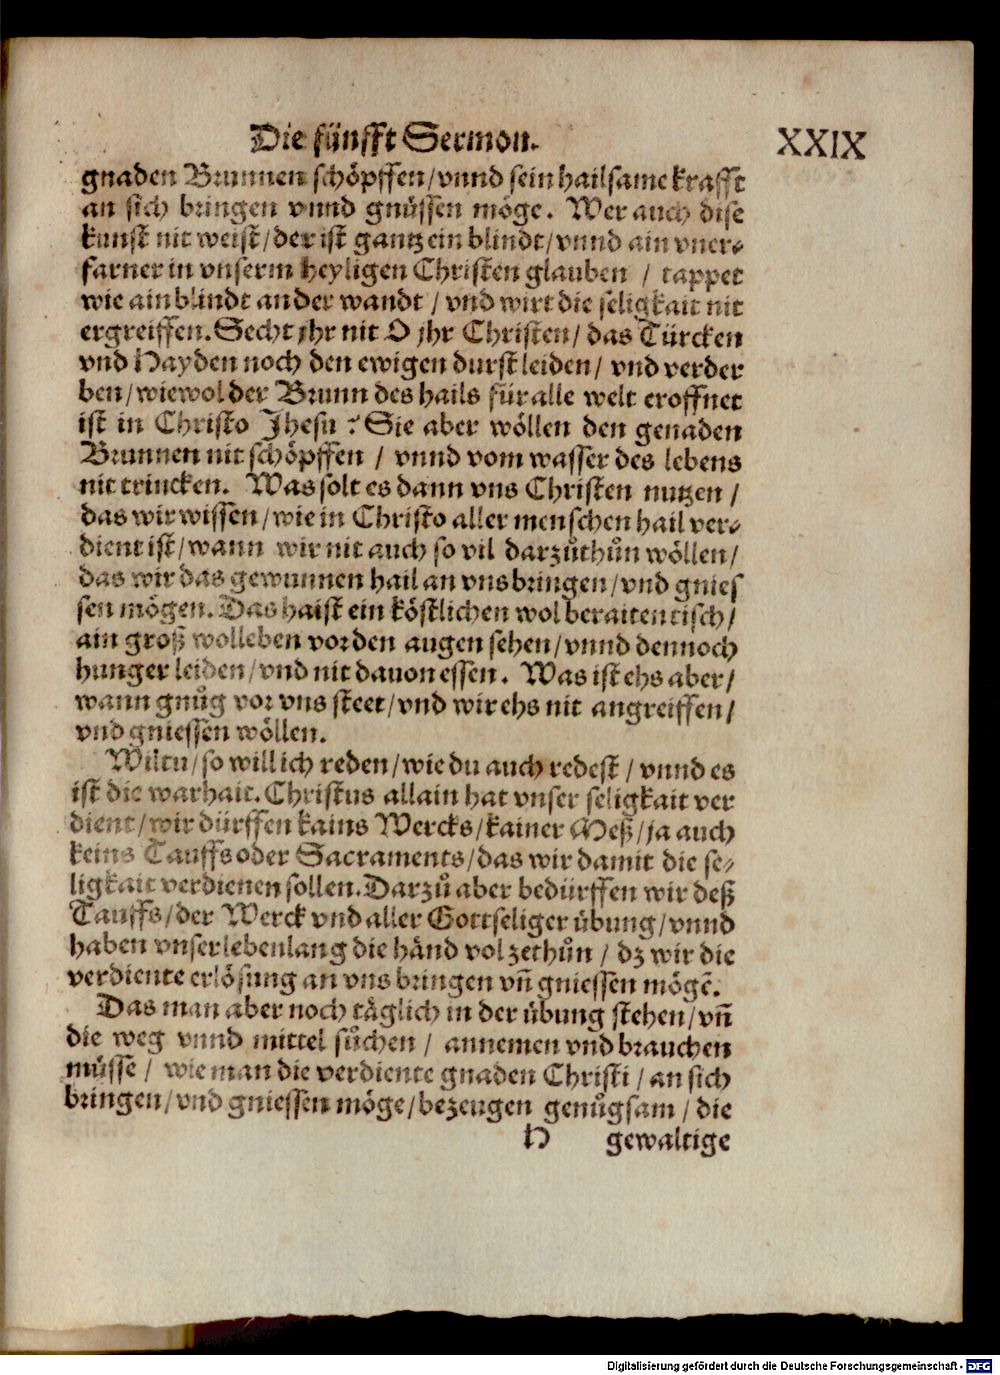 Die fünfft Sermon. XXIX
gnaden Brunnen schöpffen/vnnd sein hailsame krafft
an sich bringen vnnd gnüssen möge. Wer auch dise
kunst nit weist/der ist gantz ein blindt/vnnd ain vner⸗
farner in vnserm heyligen Christen glauben / tappet
wie ain blindt an der wandt / vnd wirt die seligkait nit
ergreiffen. Secht jhr nit O jhr Christen/ das Türcken
vnd Hayden noch den ewigen durst leiden/ vnd verder
ben/wiewol der Brunn des hails für alle welt eroffnet
ist in Christo Jhesu ? Sie aber wöllen den genaden
Brunnen nit schöpffen / vnnd vom wasser des lebens
nit trincken. Was solt es dann vns Christen nutzen /
das wir wissen/wie in Christo aller menschen hail ver⸗
dient ist/wann wir nit auch so vil darzů thůn wöllen/
das wir das gewunnen hail an vns bringen/vnd gnies
sen mögen. Das haist ein köstlichen wol beraiten tisch/
ain groß wolleben vor den augen sehen/vnnd dennoch
hunger leiden/vnd nit dauon essen. Was ist ehs aber/
wann gnůg vor vns steet/vnd wir ehs nit angreiffen/
vnd gniessen wöllen.
Wiltu/so will ich reden/wie du auch redest / vnnd es
ist die warhait. Christus allain hat vnser seligkait ver
dient/wir dürffen kains Wercks/kainer Meß/ja auch
keins Tauffs oder Sacraments/das wir damit die se⸗
ligkait verdienen sollen. Darzů aber bedürffen wir deß
Tauffs/der Werck vnd aller Gottseliger übung/vnnd
haben vnser lebenlang die händ vol zethůn / dz wir die
verdiente erlösung an vns bringen vn̄ gniessen mögē.
Das man aber noch täglich in der übung stehen/vn̄
die weg vnnd mittel sůchen / annemen vnd brauchen
müsse / wie man die verdiente gnaden Christi / an sich
bringen/vnd gniessen möge/bezeugen genůgsam / die
H gewaltige
Digitalisierung gefördert durch die Deutsche Forschungsgemeinschaft - DFG